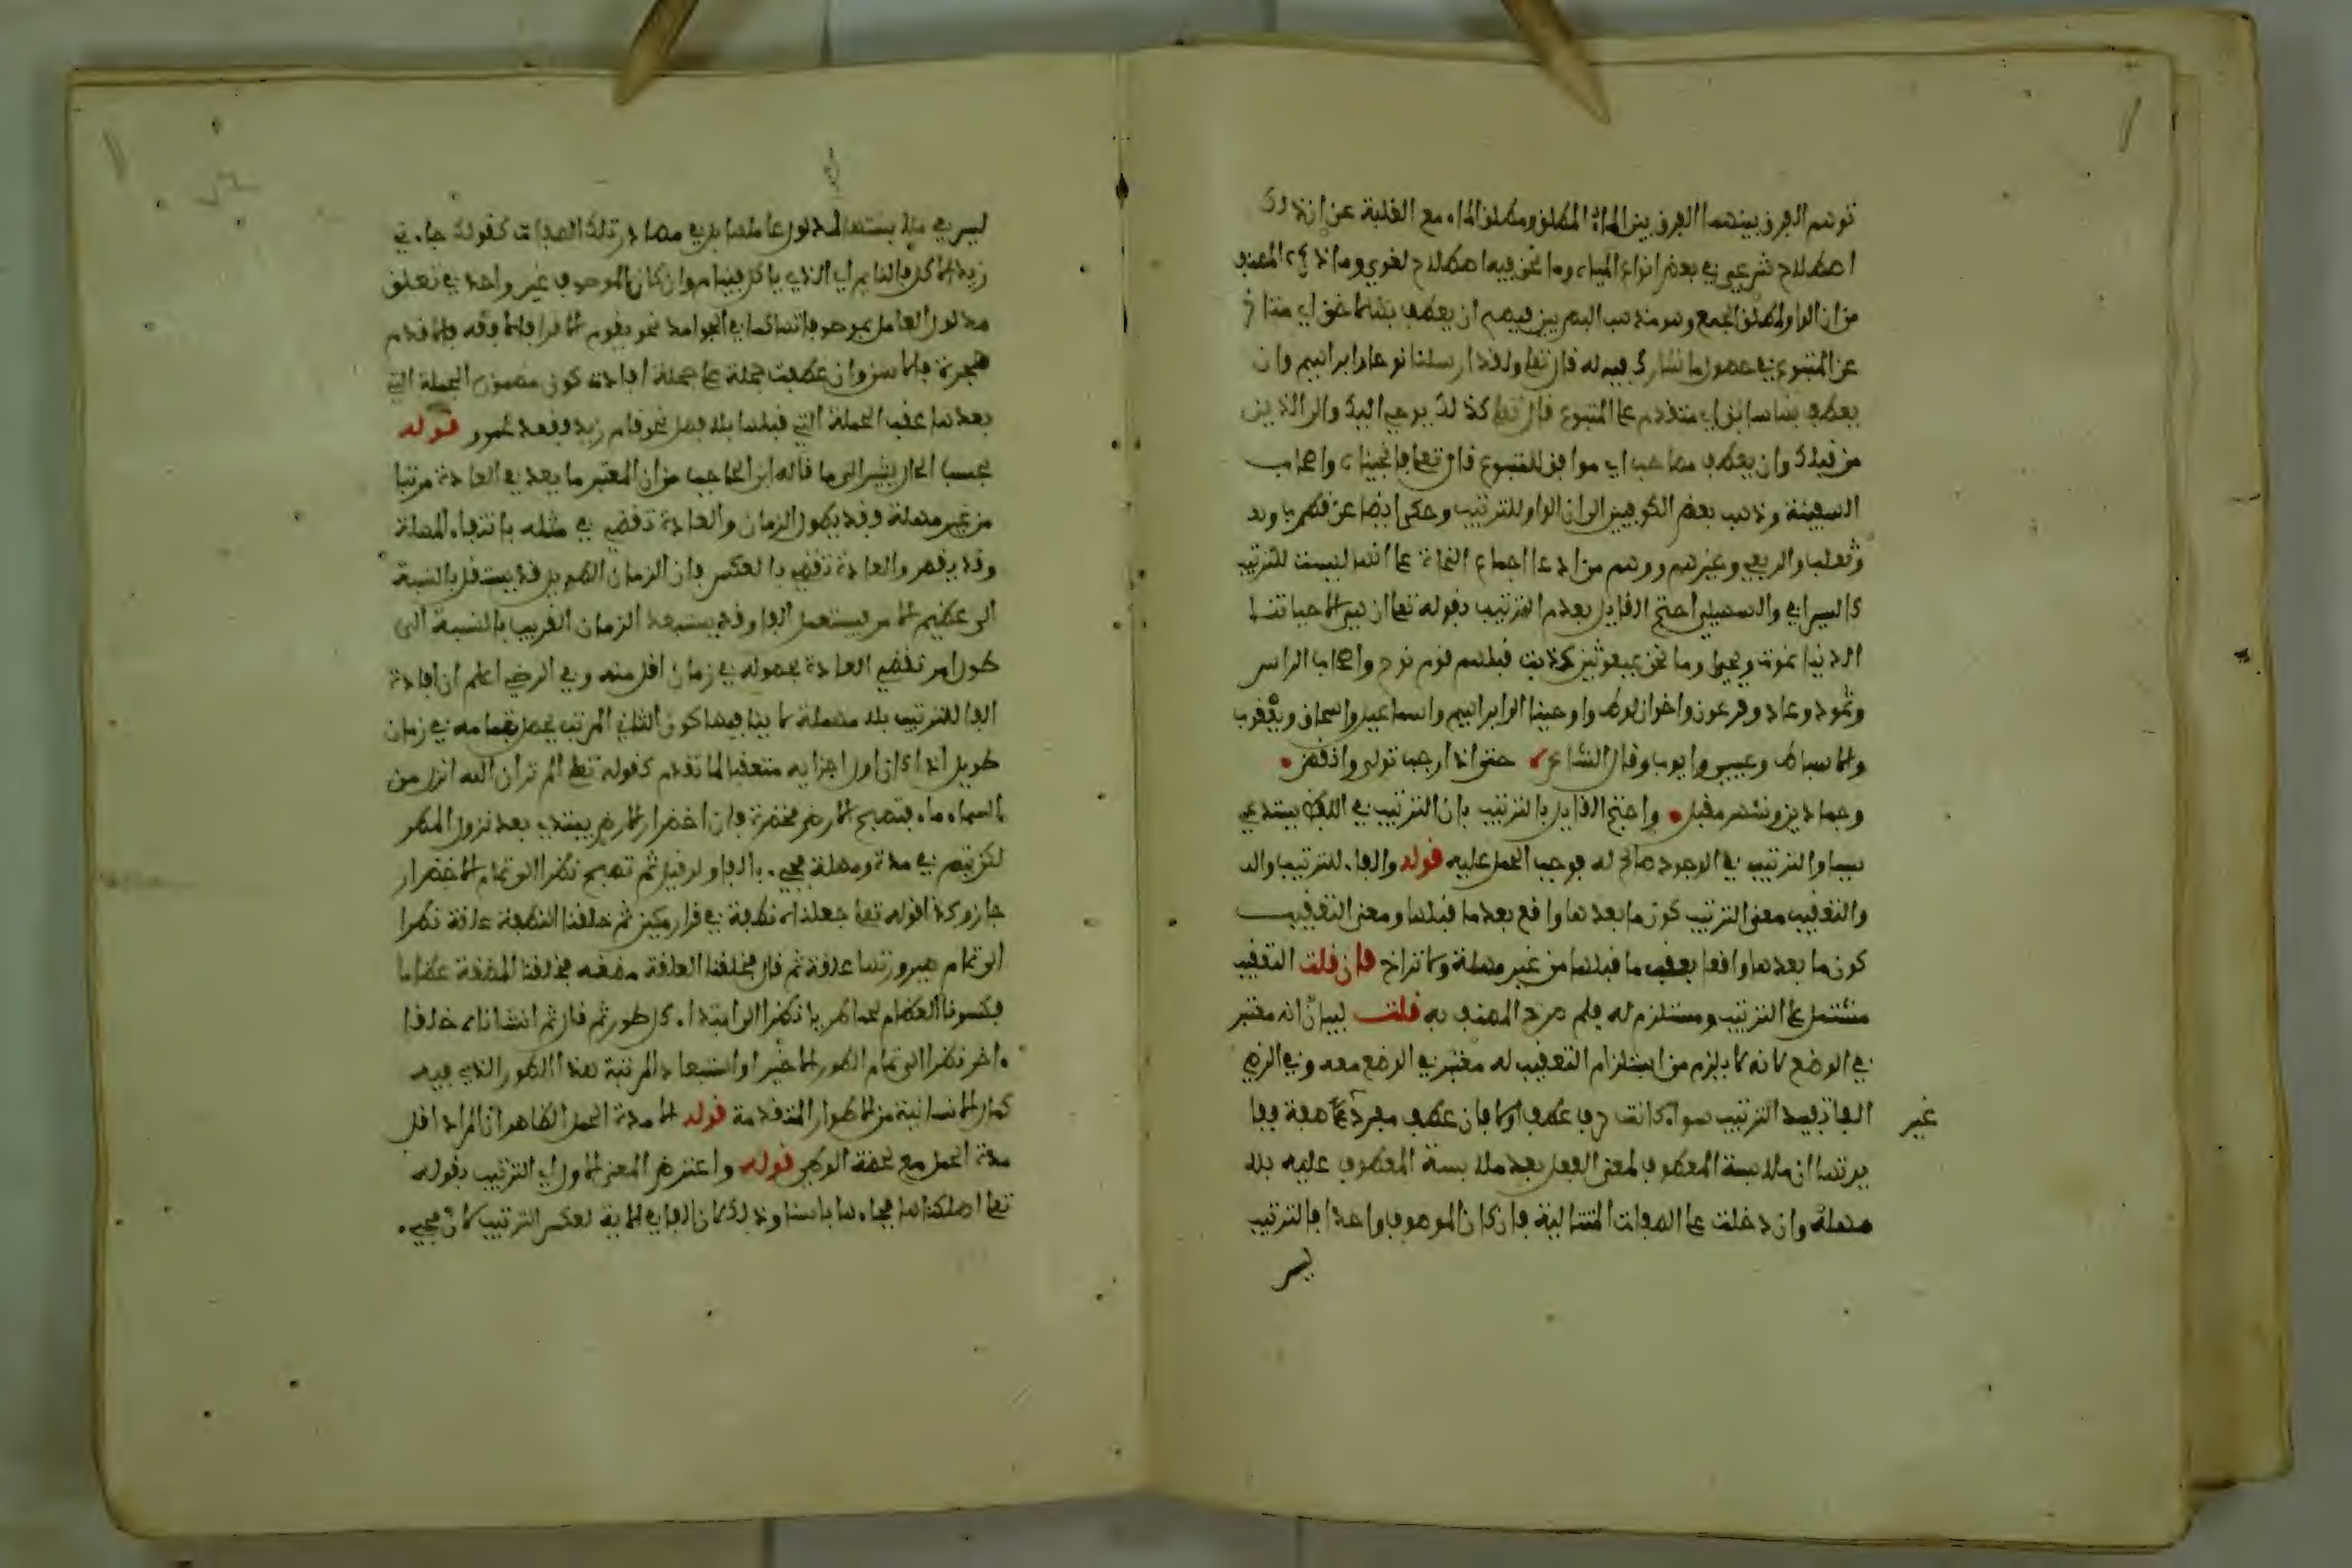 توهم الفرق بينهما الفرق بين الماء المطلق ومطلق الماء مع الغفلة عن ان ذلك
اصطلاح شرعي في بعض انواع المياه وما نحن فيه اصطلاح لغوي وما ذكره المصنف
من ان الواو لمطلق الجمع وهو مذهب البصريين فيصح ان يعطف بها لاحق اي متاخر
عن المتبوع في حصول ما شارك فيه له قال تعلى ولقد ارسلنا نوحا وابراهيم وان
يعطف بها سابق اي متقدم على المتبوع قال تعلى كذلك يوحي اليك والى الذين
من قبلك وان يعطف مصاحب اي موافق للمتبوع قال تعلى فانجيناه واصحاب
السفينة وذهب بعض الكوفيين الى ان الواو للترتيب وحكي ايضا عن قطرب
وثعلب والربعي وغيرهم ووهم من ادعا اجماع النحاة على انها ليست للترتيب
كالسيرافي والسهيلي احتج القايل بعدم الترتيب بقوله تعلى ان هي الا حياتنا
الدنيا نموت ونحيا وما نحن بمبعوثين كذبت قبلهم قوم نوح واصحاب الرس
وثمود وعاد وفرعون واخوان لوط واوحينا الى ابراهيم واسماعيل واسحاق ويعقوب
والاسباط وعيسى وايوب وقال الشاعر حتى اذا رجب تولى وانقضى
وجماديين وشهر مقبل واحتج القايل بالترتيب بان الترتيب في اللفظ يستدعي
سببا والترتيب في الوجود صالح له فوجب الحمل عليه قوله والفاء للترتيب
والتعقيب معنى الترتيب كون ما بعدها واقع بعد ما قبلها ومعنى التعقيب
كون ما بعدها واقعا بعقب ما قبلها من غير مهلة ولا تراخ فان قلت التعقيب
مشتمل على الترتيب ومستلزم له فلم صرح المصنف به قلت لبيان انه معتبر
في الوضع لانه لا يلزم من استلزام التعقيب له معتبر في الوضع معه وفي الرضي
الفا تفيد الترتيب سواء كانت حرف عطف اولا فان عطف مفرد على صفة ففا غير
يرتها ان ملابسة المعطوف لمعنى الفعل بعد ملابسة المعطوف عليه بلا
مهلة وان دخلت على الصفات المتتالية فان كان الموصوف واحدا فالترتيب
ليس
ليس في ملابستها لمدلول عاملها بل في مصادر تلك الصفات كقولك جاءني
زيد الاكل فالنايم اي الذي ياكل فينام وان كان الموصوف غير واحد في تعلق
مدلول العامل بموصوفاتها كما في الجوامد نحو يقوم الاقرا فالافقه فالاقدم
هجرة فالاسن وان عطفت جملة على جملة افادت كون مضمون الجملة التي
بعدها عقب الجملة التي قبلها بلا فصل نحو قام زيد فقعد عمرو قوله
بحسب الحال يشير الى ما قاله ابن الحاجب من ان المعتبر ما يعد في العادة مرتبا
من غير مهلة وقد يطول الزمان والعادة تقضي في مثله بانتفاء المهلة
وقد يقصر والعادة تقضي بالعكس فان الزمان الطويل قد يستقل بالنسبة
الى عظيم الامر ليستعمل الفا وقد يستبعد الزمان القريب بالنسبة الى
طول امر تقضي العادة بحصوله في زمان اقل منه وفي الرضي اعلم ان افادة
الفا للترتيب بلا مهلة لا ينافيها كون الثاني المرتب يحصل بتمامه في زمان
طويل اذا كان اول اجزايه متعقبا لما تقدم كقوله تعلى الم تر ان الله انزل من
السماء ماء فتصبح الارض مخضرة فان اخضرار الارض يبتدي بعد نزول المطر
لكن يتم في مدة ومهلة فجيء بالفا ولو قيل ثم تصبح نظرا الى تمام الاخضرار
جاز وكذا قوله تعلى جعلناه نطفة في قرار مكين ثم خلقنا النطفة علقة نظرا
الى تمام صيرورتها علقة ثم قال فخلقنا العلقة مضغة فخلقنا المضغة عظاما
فكسونا العظام لحما نظرا الى ابتداء كل طور ثم قال ثم انشاناه خلقا
ءاخر نظرا الى تمام الطور الاخير او استبعاد المرتبة هذا الطور الذي فيه
كمال الانسانية من الاطوار المتقدمة قوله الا مدة الحمل الظاهر ان المراد اقل
مدة الحمل مع لحظة الوطء قوله واعترض المعنى الاول اي الترتيب بقوله
تعلى اهلكناها فجاءها باسنا وذلك لان الفا في الاية لعكس الترتيب لان مجيء